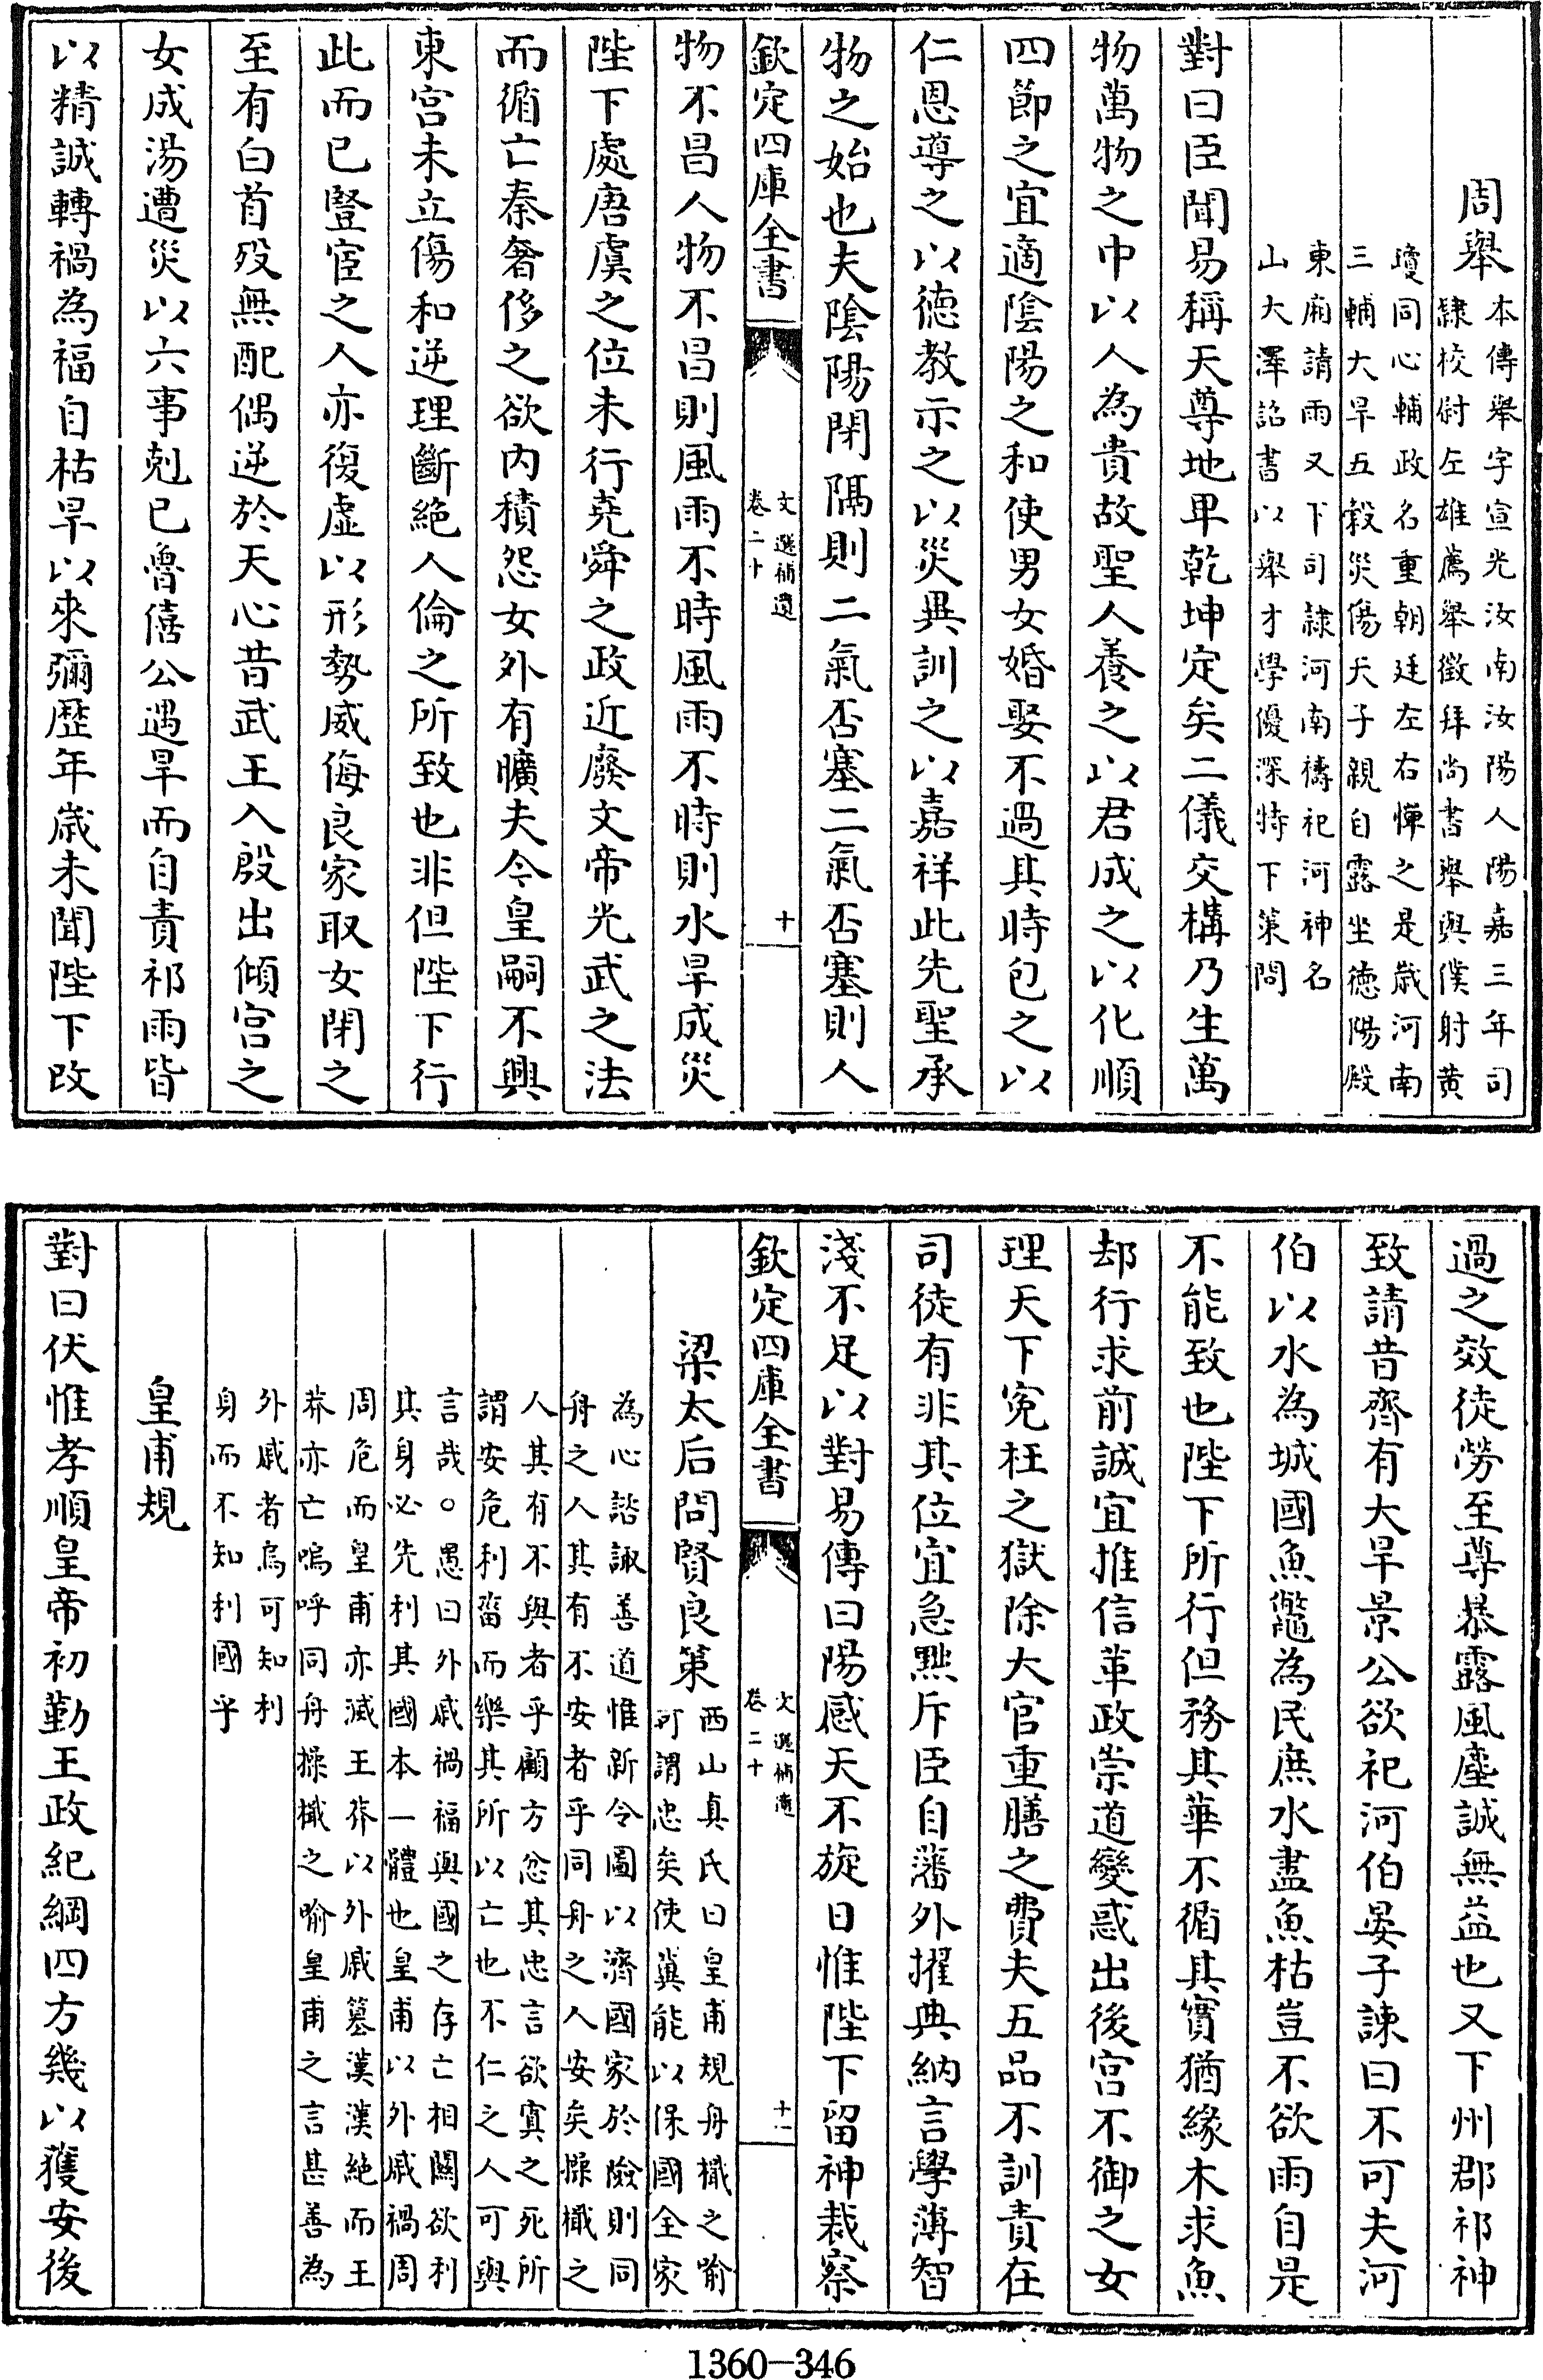 周舉本傳舉字宣光汝南汝陽人陽嘉三年司
隷校尉左雄薦舉徵拜尚書舉與僕射黄
瓊同心輔政名重朝廷左右憚之是歲河南
三輔大旱五穀災傷天子親自露坐德陽殿
東廂請雨又下司隷河南禱祀河神名
山大澤詔書以舉才學優深特下策問
對曰臣聞易稱天尊地卑乾坤定矣二儀交構乃生萬
物萬物之中以人為貴故聖人養之以君成之以化順
四節之宜適陰陽之和使男女婚娶不過其時包之以
仁恩導之以德教示之以災異訓之以嘉祥此先聖承
物之始也夫陰陽閉隔則二氣否塞二氣否塞則人
欽定四庫全書
文選補遺
卷二十
十
物不昌人物不昌則風雨不時風雨不時則水旱成災
陛下處唐虞之位未行堯舜之政近廢文帝光武之法
而循亡秦奢侈之欲内積怨女外有曠夫今皇嗣不興
東宫未立傷和逆理斷絶人倫之所致也非但陛下行
此而已豎宦之人亦復虛以形勢威侮良家取女閉之
至有白首殁無配偶逆於天心昔武王入殷出傾宫之
女成湯遭災以六事剋已魯僖公遇旱而自責祁雨皆
以精誠轉禍為福自枯旱以來彌歴年歲未聞陛下改
過之效徒勞至尊暴露風塵誠無益也又下州郡祁神
致請昔齊有大旱景公欲祀河伯晏子諫曰不可夫河
伯以水為城國魚鼈為民庶水盡魚枯豈不欲雨自是
不能致也陛下所行但務其華不循其實猶緣木求魚
却行求前誠宜推信革政崇道變惑出後宫不御之女
理天下寃枉之獄除大官重膳之費夫五品不訓責在
司徒有非其位宜急黜斥臣自藩外擢典納言學薄智
淺不足以對易傳曰陽感天不旋日惟陛下留神裁察
欽定四庫全書
文選補遺
卷二十
十一
梁太后問賢良策西山真氏曰皇甫規舟檝之喻
可謂忠矣使冀能以保國全家
為心諮諏善道惟新令圖以濟國家於險則同
舟之人其有不安者乎同舟之人安矣操檝之
人其有不與者乎顧方忿其忠言欲寘之死所
謂安危利菑而樂其所以亡也不仁之人可與
言哉○愚曰外戚禍福與國之存亡相關欲利
其身必先利其國本一體也皇甫以外戚禍周
周危而皇甫亦滅王莽以外戚簒漢漢絶而王
莽亦亡嗚呼同舟操檝之喻皇甫之言甚善為
外戚者烏可知利
身而不知利國乎
皇甫規
對曰伏惟孝順皇帝初勤王政紀綱四方幾以獲安後
1360-346